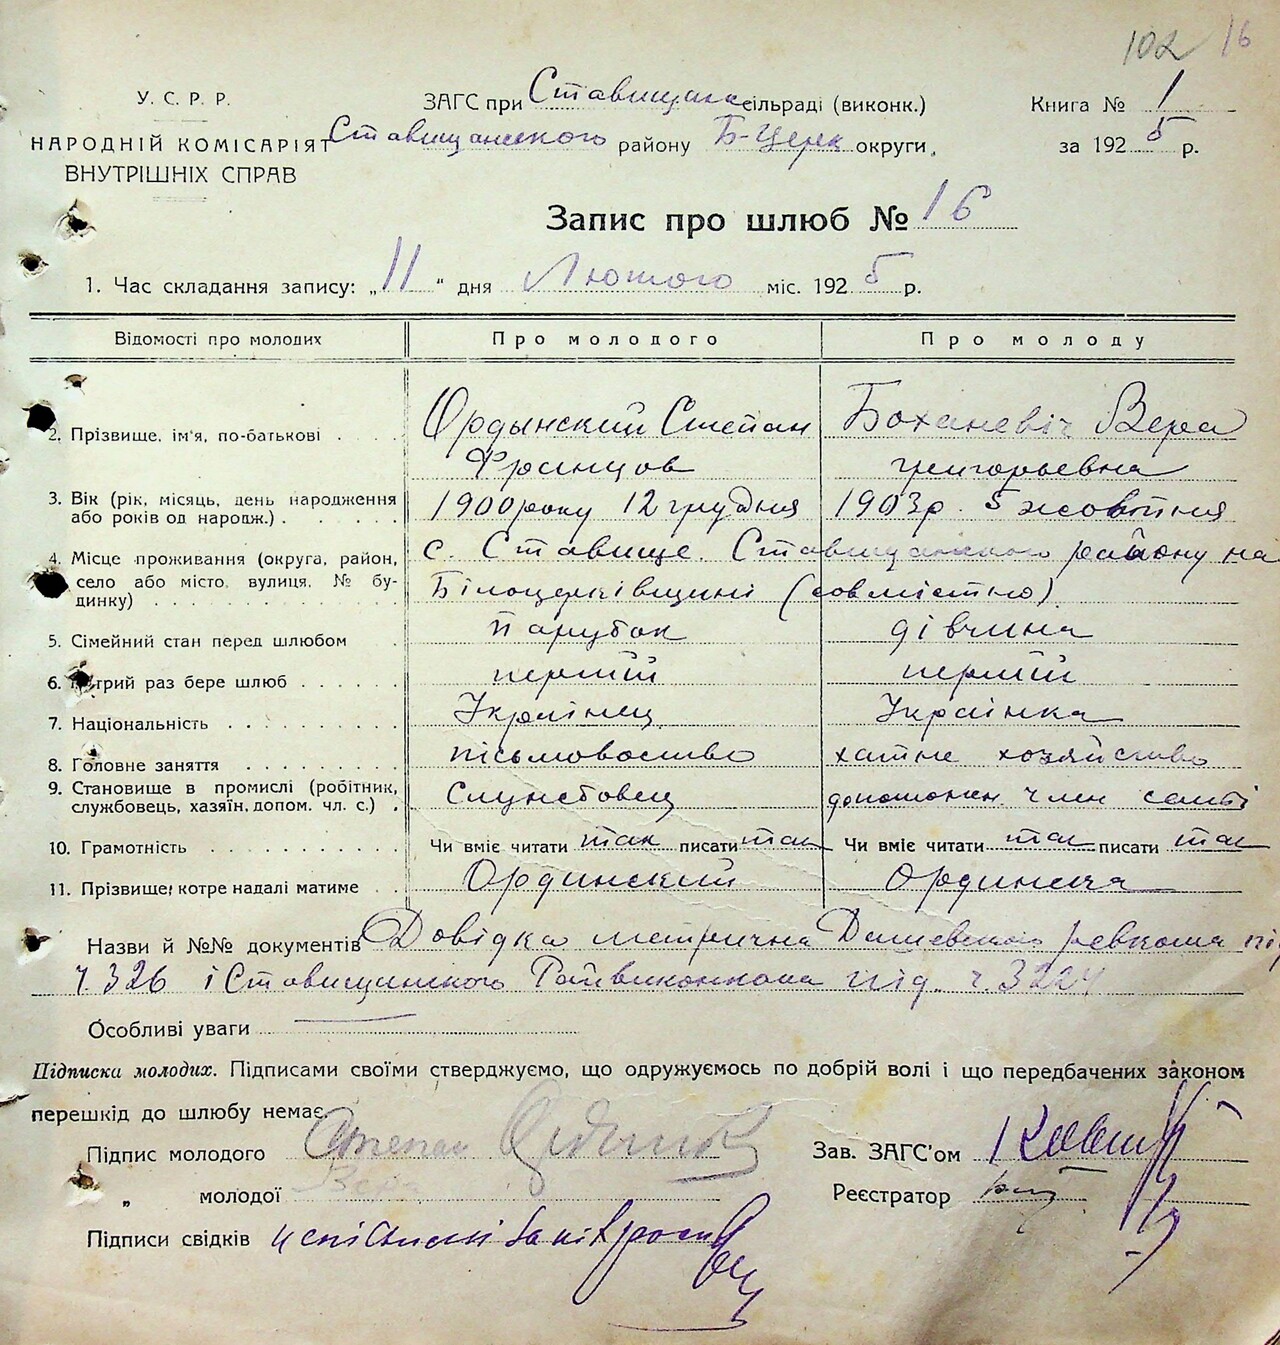 102 16
У. С. Р. Р.
НАРОДНІЙ КОМІСАРІЯТ
ВНУТРІШНІХ СПРАВ
ЗАГС при Ставищанск сільраді (виконк.)
Ставищанского району Б-Церк округи,
Книга № 1
за 1925 р.
Запис про шлюб № 16
1. Час складання запису: „11" дня Лютого міс. 1925 р.
Відомості про молодих Про молодого Про молоду
2. Прізвище, ім'я, по-батькові Ордынский Степан Францов Боханевіч Вера григорьевна
3. Вік (рік, місяць, день народження або років од народж.) 1900 року 12 грудня 1903р. 5 жовтня
4. Місце проживання (округа, район, село або місто, вулиця, № будинку) с. Ставище Ставищанского району на Білоцерківщині (совмістно)
5. Сімейний стан перед шлюбом парубок дівчина
6. Котрий раз бере шлюб перший перший
7. Національність Українец Українка
8. Головне заняття пісьмоводство хатне хозяйство
9. Становище в промислі (робітник, службовець, хазяїн, допом. чл. с.) Службовец допоможн. член семьі
10. Грамотність Чи вміє читати так писати так Чи вміє читати так писати так
11. Прізвище, котре надалі матиме ОрдинскийОрдинска
Назви й №№ документів Довідка метрична ревкома під
ч. 326 і Ставищанского Райвиконкома під ч. 3224
Особливі уваги
Підписка молодих. Підписами своїми стверджуємо, що одружуємось по добрій волі і що передбачених законом
перешкід до шлюбу немає.
Підпис молодого Степан
„ молодої Вера
Зав. ЗАГС'ом
Реєстратор
Підписи свідків